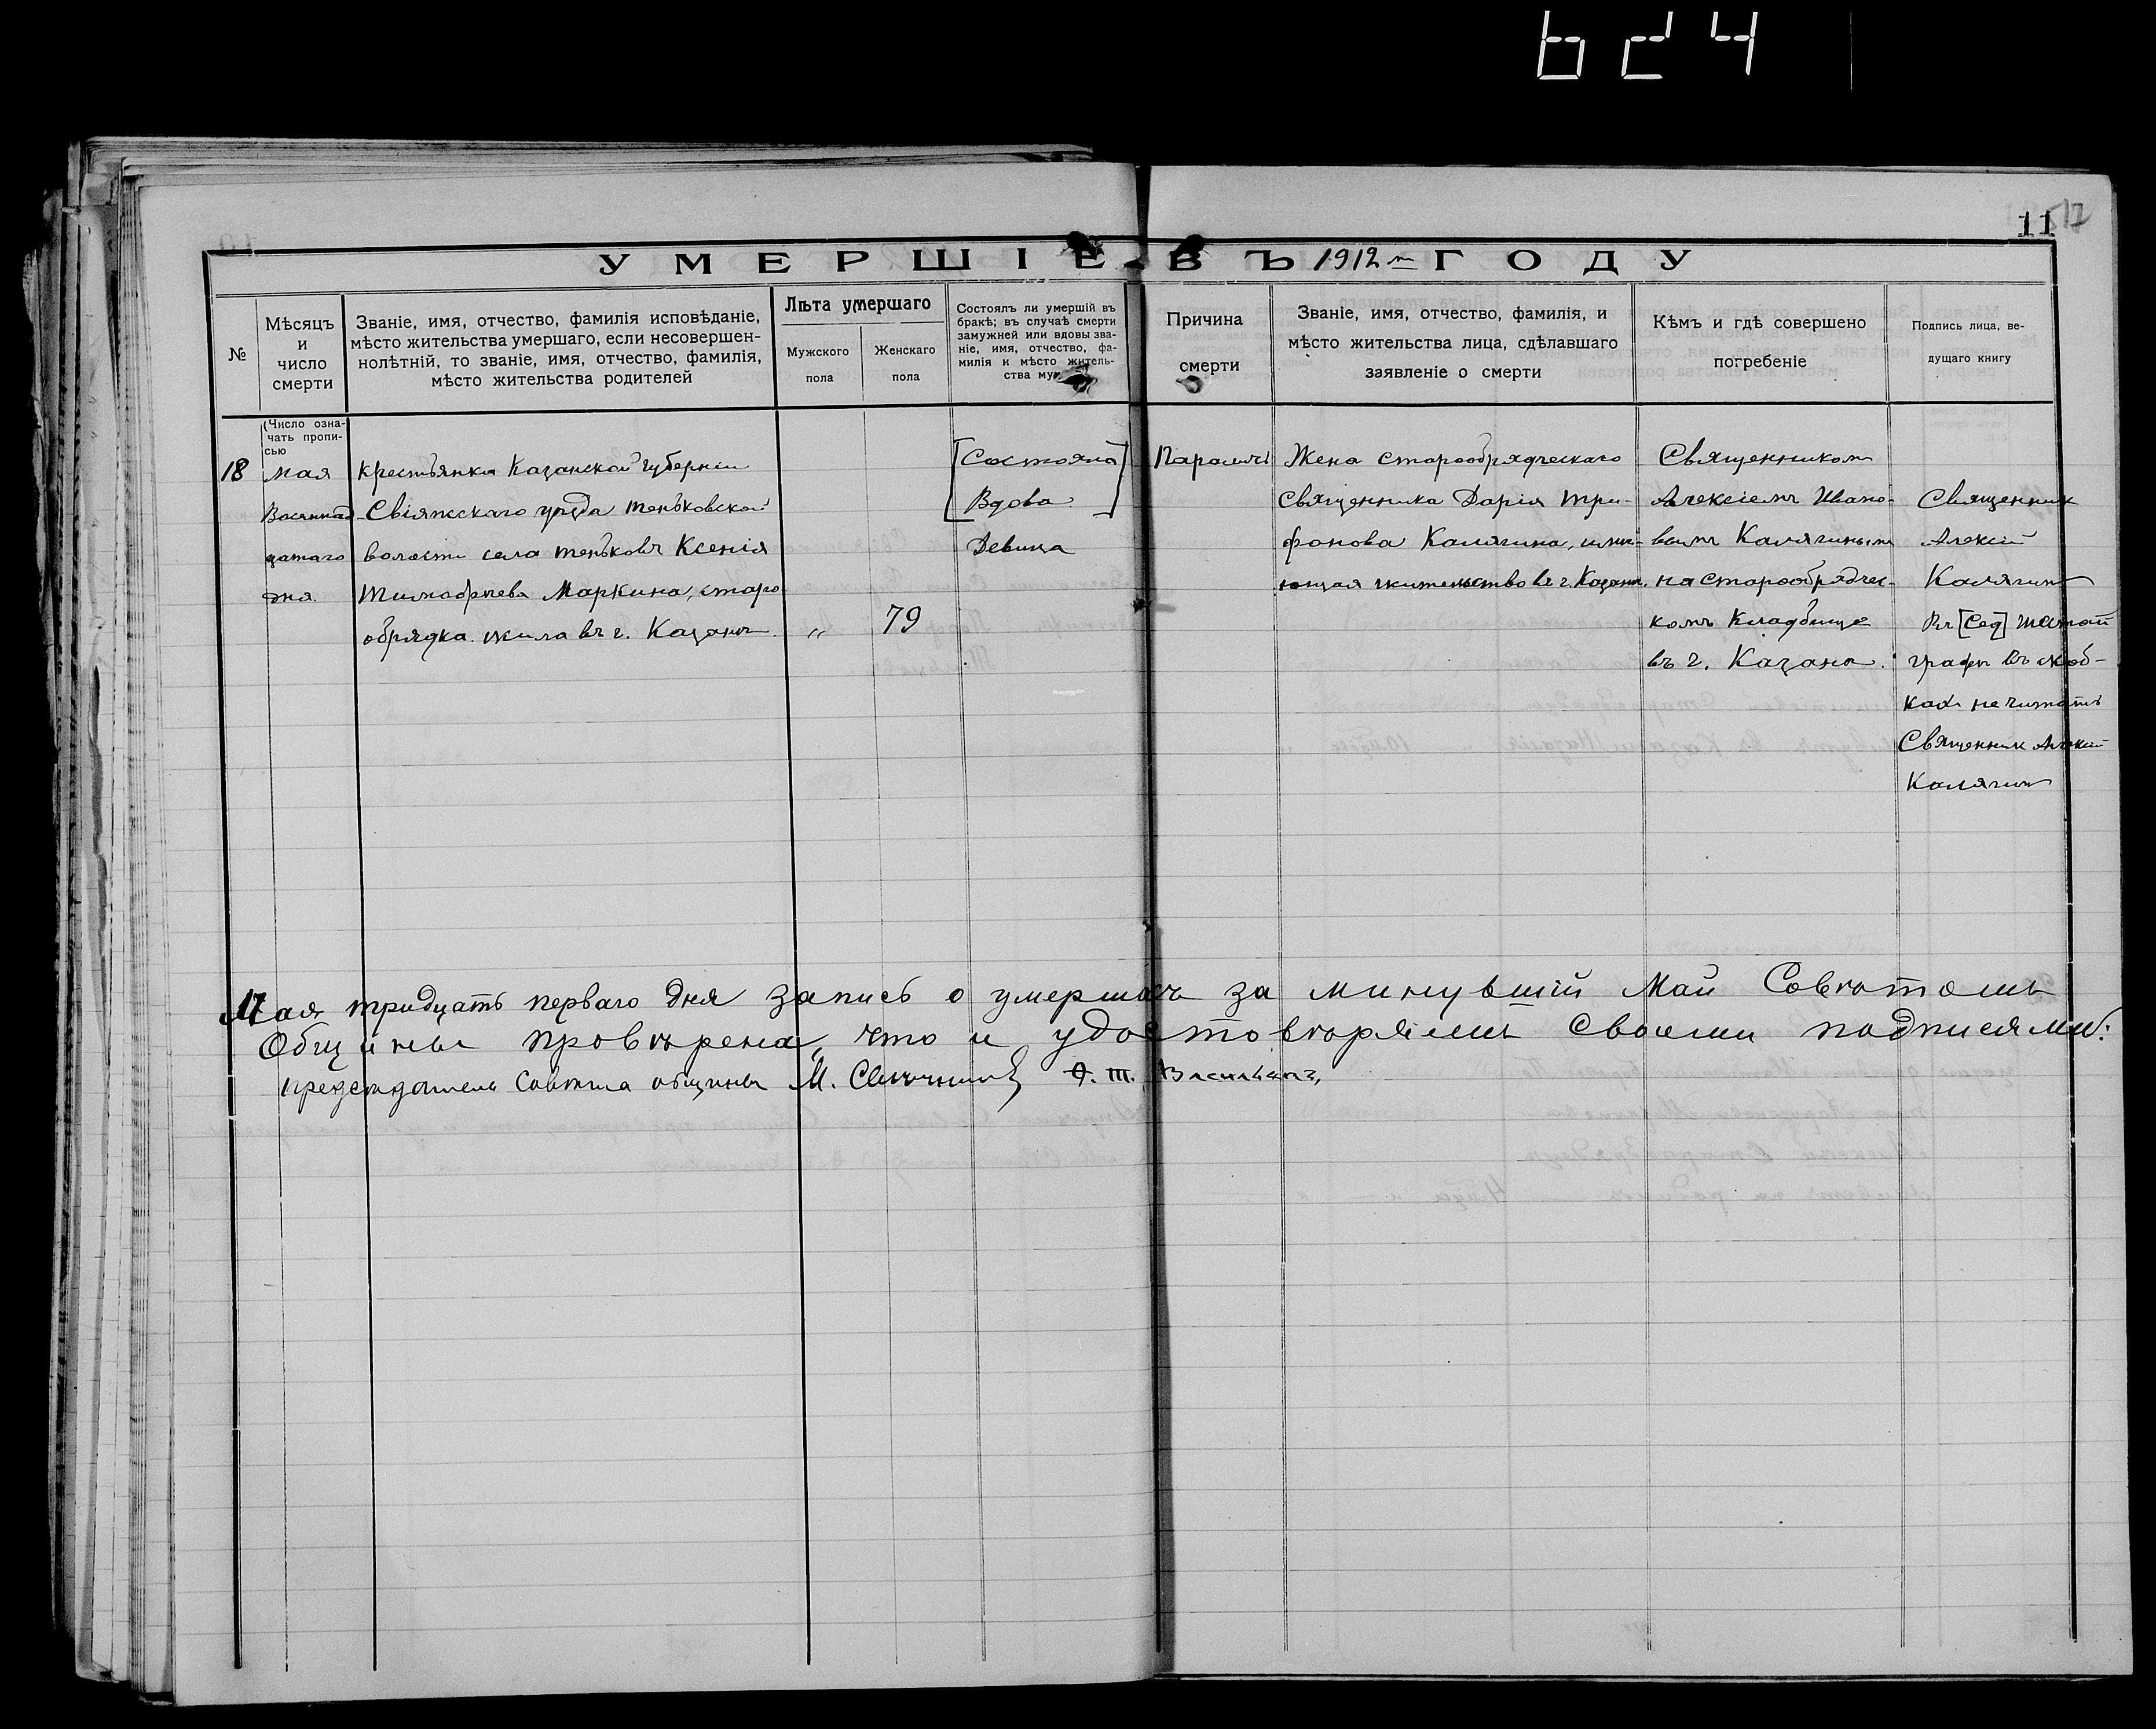 624
11
517
УМЕРШІЕ ВЪ 1912 м ГОДУ
№
Мѣсяцъ
и
число
смерти
Званіе, имя, отчество, фамилія исповѣданіе,
мѣсто жительства умершаго, если несовершен-
нолѣтній, то званіе, имя, отчество, фамилія,
мѣсто жительства родителей
Лѣта умершаго
Мужского
пола
Женскаго
пола
Состоялъ ли умершій въ
бракѣ; въ случаѣ смерти
замужней или вдовы зва-
ніе, имя, отчество, фа-
милія и мѣсто житель-
ства му
Причина
смерти
Званіе, имя, отчество, фамилія, и
мѣсто жительства лица, сдѣлавшаго
заявленіе о смерти
Кѣмъ и гдѣ совершено
погребеніе
Подпись лица, ве-
дущаго книгу
(Число озна-
чать пропи-
сью
18
мая
Восемнад-
цатаго
дня.
Крестьянка Казанской губерніи
Свіяжскаго уѣзда Теньковской
волости села Теньковъ Ксенія
Тимофѣева Маркина, старо
обрядка. жила въ г. Казанѣ.
„
79
[Состояла]
[Вдова]
Девица
Параличъ
Жена старообрядческаго
Священника Дарія Три-
фонова Калягина, имѣ-
ющая жительство въ г. Казани.
Священникомъ
Алексіемъ Ивано-
вымъ Калягинымъ
на старообрядчес-
комъ Кладбище
въ г. Казане.
Священник
Алексій
Калягинъ
Въ [сед] шестой
графѣ въ скоб-
кахъ не читать
Священник Алексій
Калягинъ
Мая тридцать перваго дня запись о умершихъ за минувшій Май Совѣтомъ
Общины провѣрена, что и удостовѣряемъ своими подписями:
председатель Совѣта общины М. Ѳ. Т. Васильевъ,